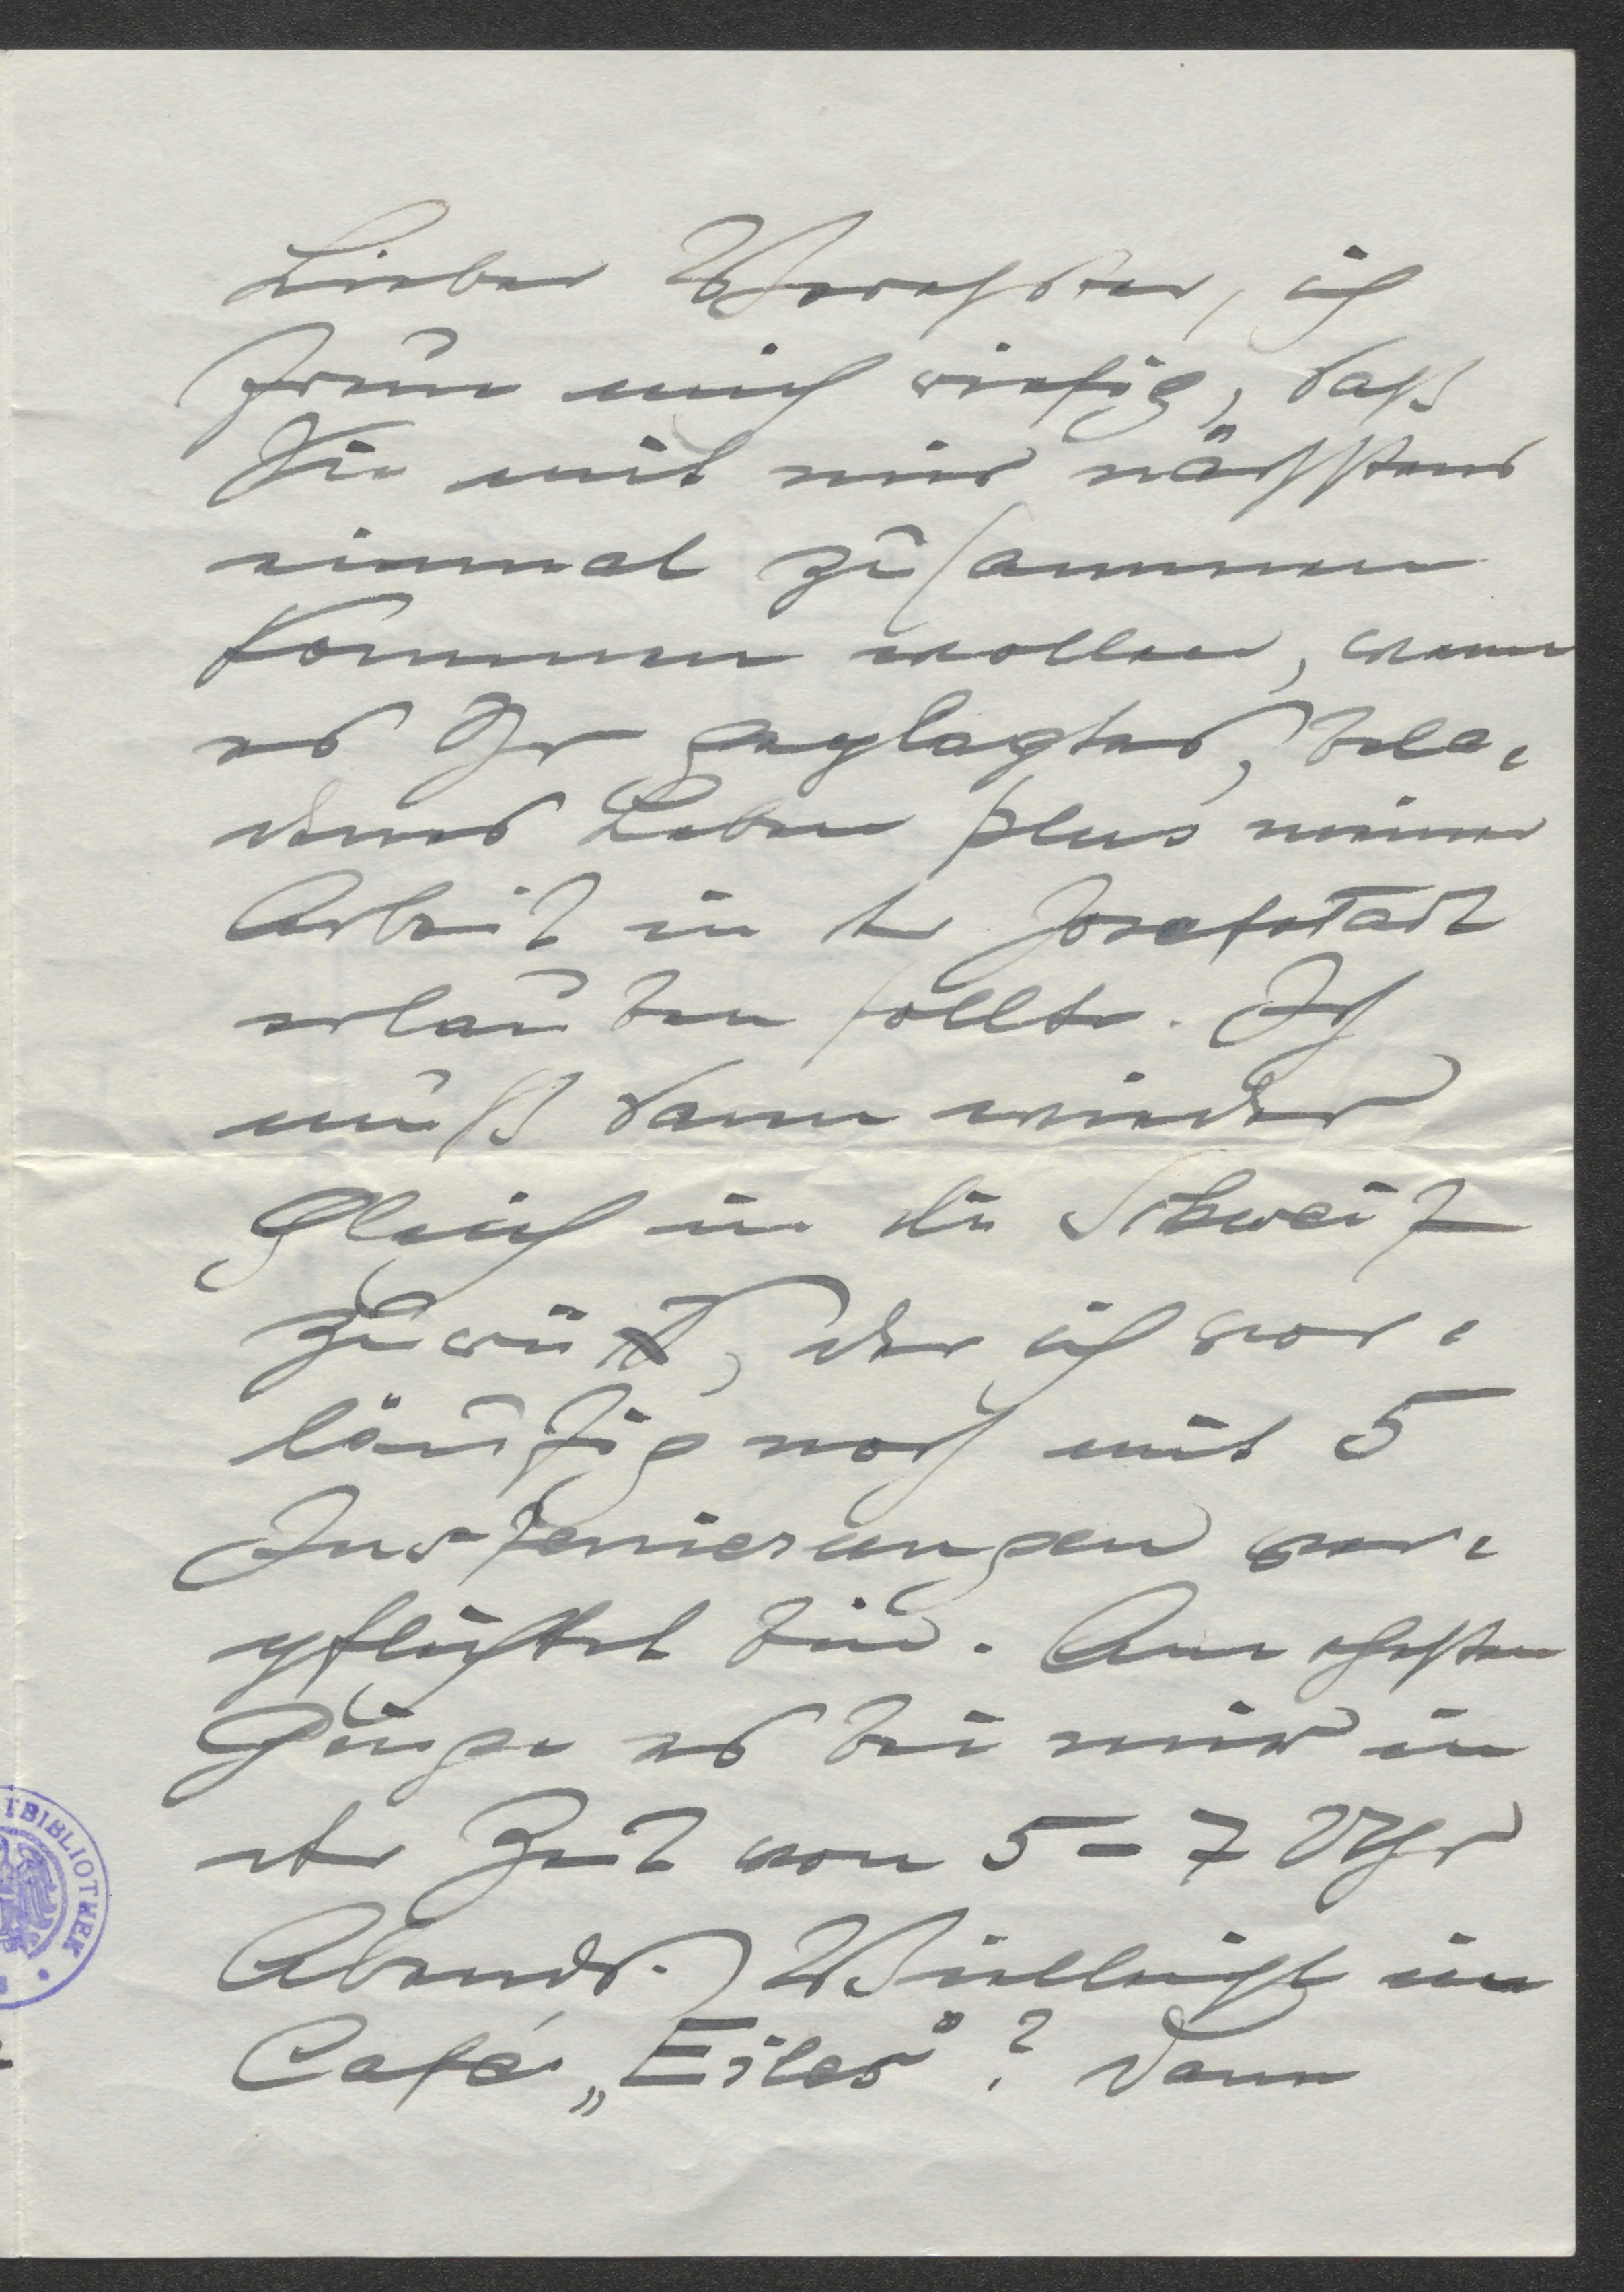 Lieber Verehrter, ich
freue mich riesig, daß
Sie mit mir nächstens
einmal zusammen
kommen wollen, wenn
es Ihr geplagtes, bela-
denes Leben plus meiner
Arbeit in der Josefstadt
erlauben sollte. Ich
muß dann wieder
gleich in die Schweiz
zurück, der ich vor-
läufig noch mit 5
Inszenierungen ver-
pflichtet bin. Am ehesten
ginge es bei mir in
der Zeit von 5–7 Uhr
Abends. Vielleicht im
Café „Eiles"? Dann
TBIBLIOTHEK